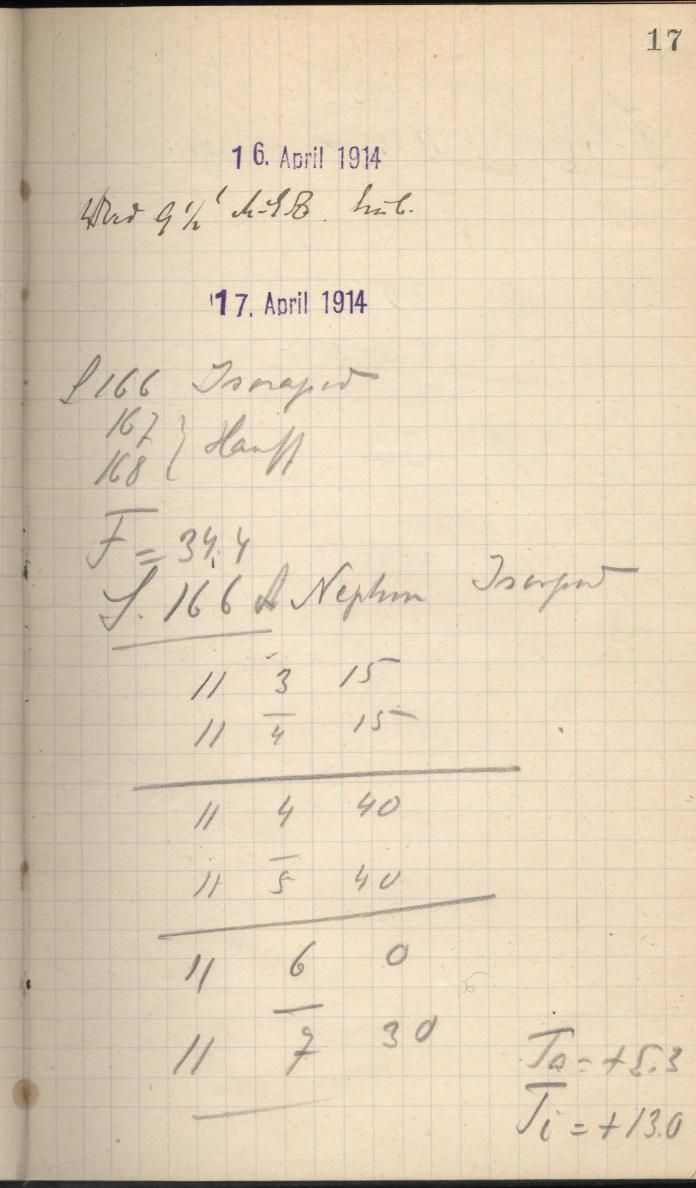 17
16. April 1914
9 1/2
17. April 1914
S 166 Isorapid
167 } Hauff
168
F = 34.4
S. 166 A Neptun Isorapid
11 3 15
11 4 15
11 4 40
11 5 40
11 6 0
11 7 30
Ta = +5.3
Ti = +13.0